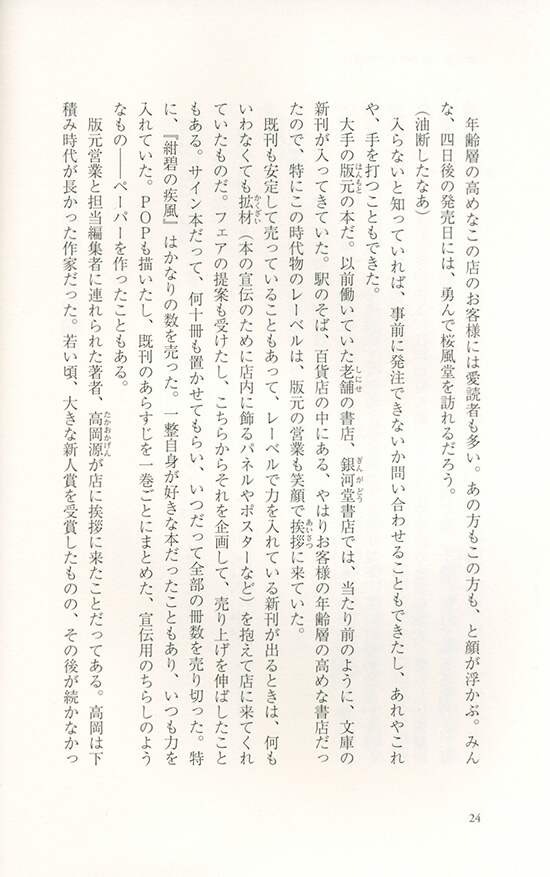 年齢層の高めなこの店のお客様には愛読者も多い。あの方もこの方も、と顔が浮かぶ。みん
な、四日後の発売日には、勇んで桜風堂を訪れるだろう。
（油断したなあ）
入らないと知っていれば、事前に発注できないか問い合わせることもできたし、あれやこれ
や、手を打つこともできた。
大手の版元の本だ。以前働いていた老舗の書店、銀河堂書店では、当たり前のように、文庫の
はんもと
しにせ
ぎんがどう
新刊が入ってきていた。駅のそば、百貨店の中にある、やはりお客様の年齢層の高めな書店だっ
たので、特にこの時代物のレーベルは、版元の営業も笑顔で挨拶に来ていた。
あいさつ
既刊も安定して売っていることもあって、レーベルで力を入れている新刊が出るときは、何も
いわなくても拡材（本の宣伝のために店内に飾るパネルやポスターなど）を抱えて店に来てくれ
かくざい
ていたものだ。フェアの提案も受けたし、こちらからそれを企画して、売り上げを伸ばしたこと
もある。サイン本だって、何十冊も置かせてもらい、いつだって全部の冊数を売り切った。特
に、『紺碧の疾風』はかなりの数を売った。一整自身が好きな本だったこともあり、いつも力を
入れていた。POPも描いたし、既刊のあらすじを一巻ごとにまとめた、宣伝用のちらしのよう
なもの――ペーパーを作ったこともある。
版元営業と担当編集者に連れられた著者、高岡源が店に挨拶に来たことだってある。高岡は下
たかおかげん
積み時代が長かった作家だった。若い頃、大きな新人賞を受賞したものの、その後が続かなかっ
24